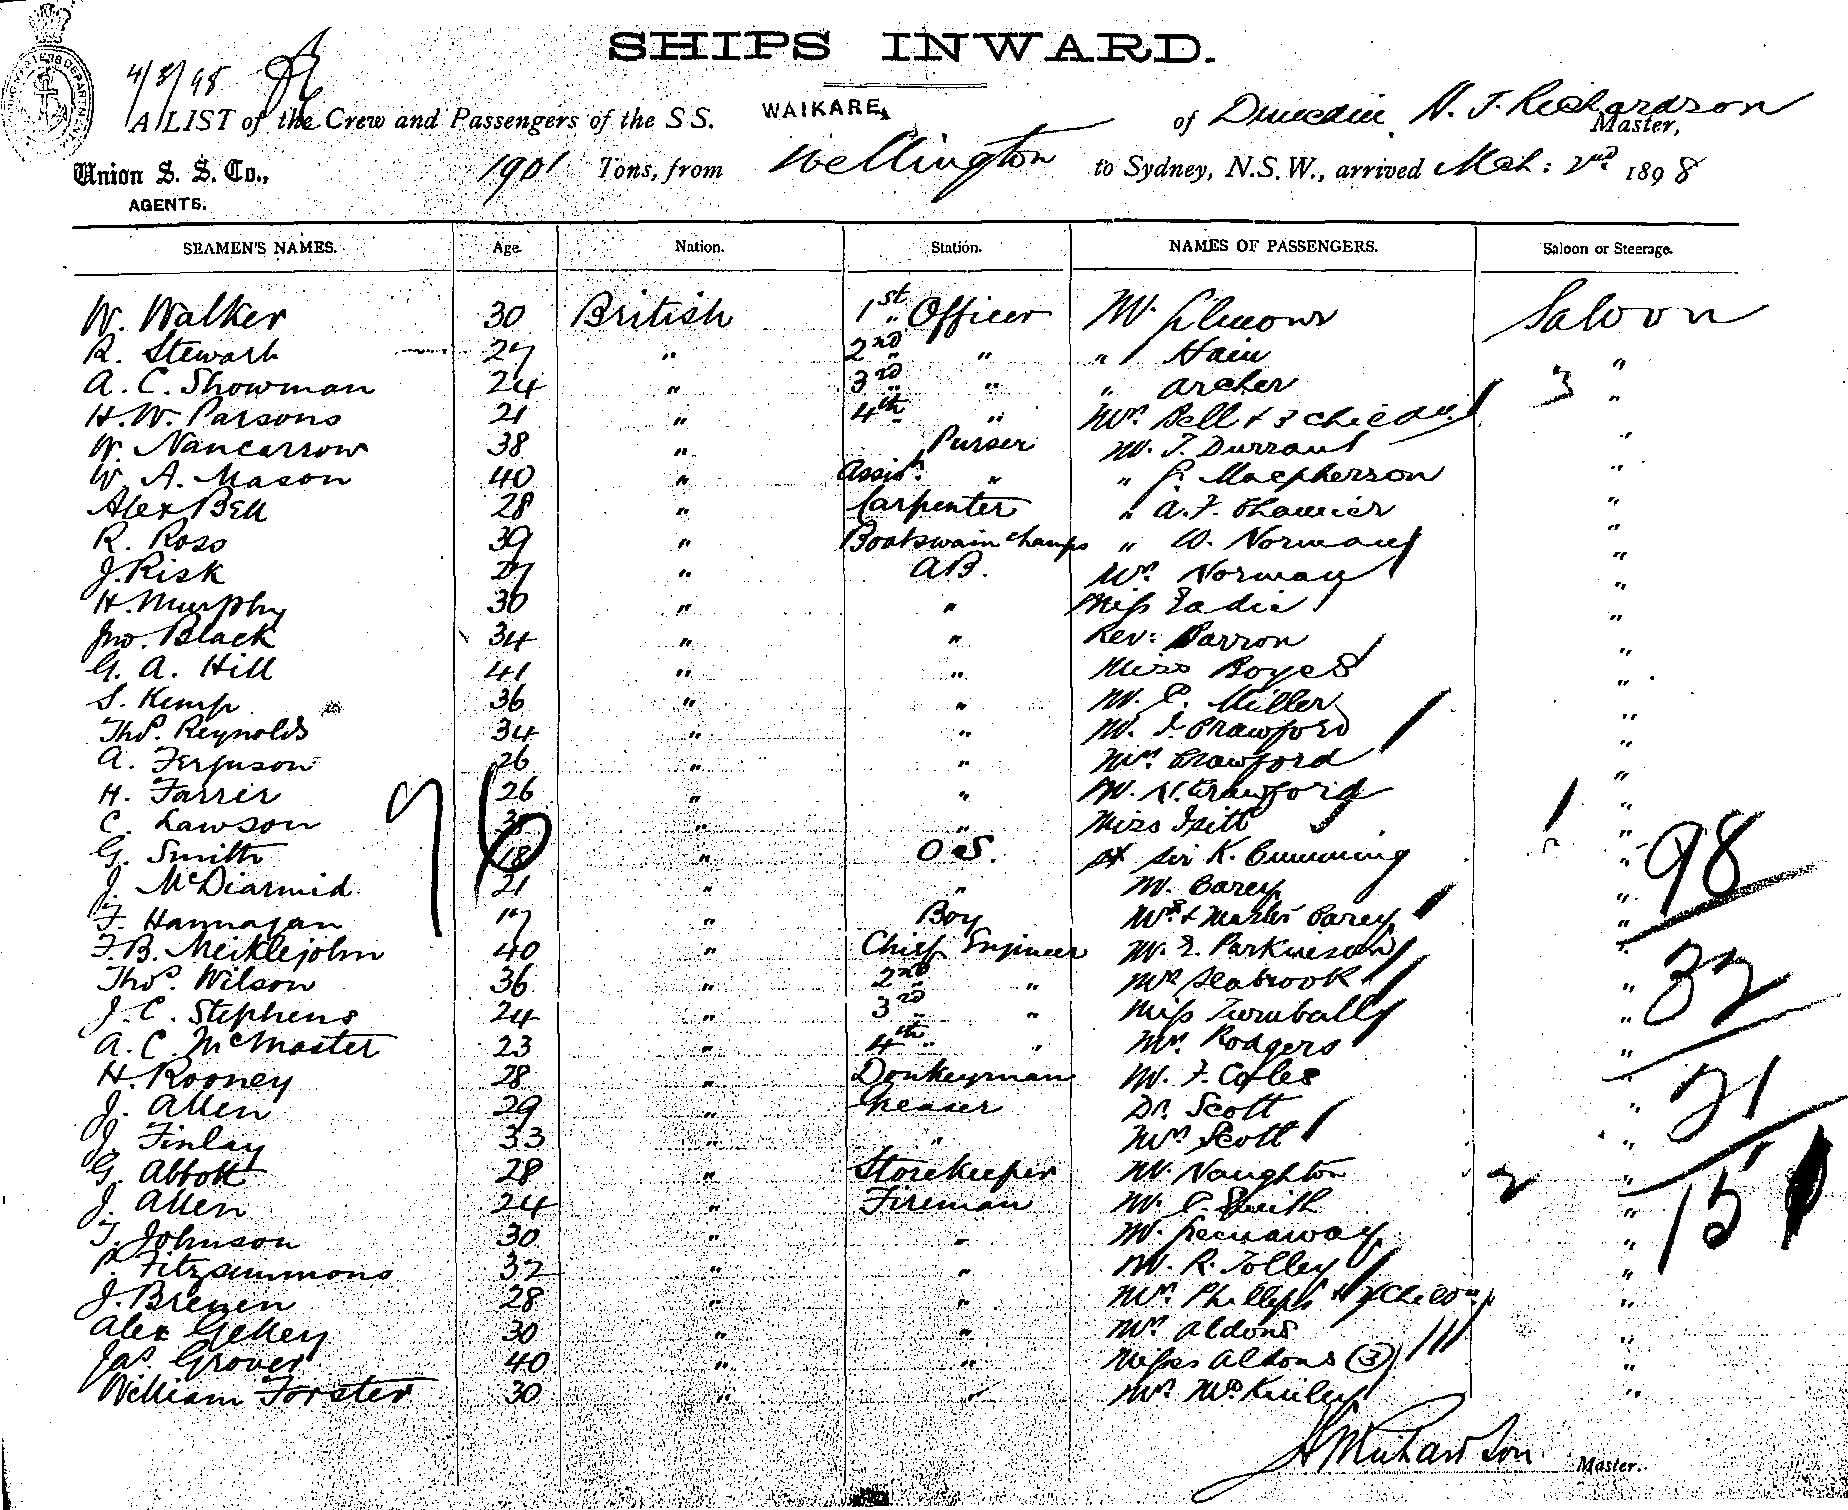 SHIPS INWARD.
4/3/98
A LIST of the Crew and Passengers of the SS. WAIKARE, of Dunedin, N. J. Richardson Master,
Union S. S. Co., 1901 Tons, from Wellington to Sydney, N.S.W., arrived Mch: 2nd 1898
AGENTS.
SEAMEN'S NAMES. Age. Nation. Station. NAMES OF PASSENGERS. Saloon or Steerage.
W. Walker 30 British 1st Officer Mr. Saloon
R. Stewart 27 " 2nd " " Hain "
A. C. Showman 24 " 3rd " " Archer 3 "
H. W. Parsons 21 " 4th " Mrs. Bell & 3 child "
W. Nancarrow 38 " Purser Mr. J. Durrant "
W. A. Mason 40 " Assist. " " Macpherson "
Alex Bell 28 " Carpenter " A. F. "
R. Ross 39 " Boatswain & Lamps " W. Norman "
J. Risk 27 " AB. Mrs. Norman "
H. Murphy 30 " " Miss Eadie "
Jno. Black 34 " " Rev: Barron "
G. A. Hill 41 " " Miss Boyes "
S. Kemp 36 " " Mr. C. Miller "
Thos. Reynolds 34 " " Mr. J. Crawford "
A. Ferguson 26 " " Mrs. Crawford "
H. Farrer 26 " " Mr. N. Crawford "
C. Lawson " " Miss Isitt "
G. Smith 18 " O.S. Sir K. Cumming " 98
J. McDiarmid 21 " " Mr. Carey "
F. Hannagan 17 " Boy Mrs. & Master Carey "
F. B. Meiklejohn 40 " Chief Engineer Mr. E. Parkinson "
Thos. Wilson 36 " 2nd " Mrs. Seabrook " 32
J. C. Stephens 24 " 3rd " Miss Turnbull "
A. C. McMaster 23 " 4th " Mrs. Rodgers "
H. Rooney 28 " Donkeyman Mr. F. Coles "
J. Allen 29 " Greaser Dr. Scott " 21
J. Finlay 33 " " Mrs. Scott "
G. Abbott 28 " Storekeeper Mr. Naughton 2 "
J. Allen 24 " Fireman Mr. C. Smith " 151
T. Johnson 30 " " Mr. Greenaway "
P. Fitzsimmons 32 " " Mr. R. Tolley "
J. Brenen 28 " " Mrs. Phillips & 2 child "
Alex Gelley 30 " " Mrs. Aldons "
Jas. Grover 40 " " Misses Aldons (3) "
William Forster 30 " " Mrs. McKinley "
Richardson Master.